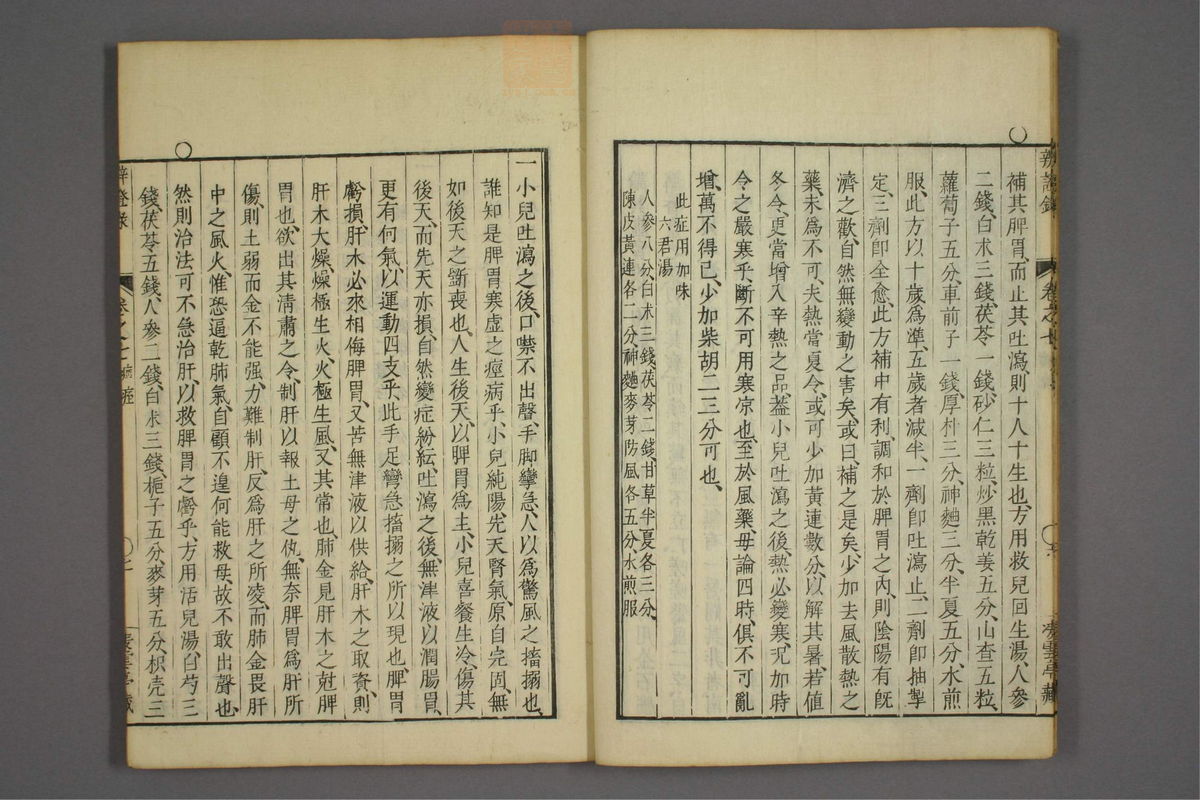 補其脾胃、而止其吐瀉、則十人十生也、方用救兒回生湯、人參
二錢、白朮三錢、茯苓一錢、砂仁三粒、炒黑乾姜五分、山查五粒、
蘿蔔子五分、車前子一錢、厚朴三分、神麯三分、半夏五分、水煎
服、此方以十歲爲準、五歲者減半、一劑卽吐瀉止、二劑卽抽掣
定、三劑卽全愈、此方補中有利、調和於脾胃之內、則陰陽有旣
濟之歡、自然無變動之害矣、或曰、補之是矣、少加去風散熱之
藥、未爲不可、夫熱當夏令、或可少加黃連數分、以解其暑、若值
冬令、更當增入辛熱之品、蓋小兒吐瀉之後、熱必變寒、况加時
令之嚴寒乎、斷不可用寒凉也、至於風藥、毋論四時、俱不可亂
增、萬不得已、少加柴胡二三分可也、
此症用加味
六君湯
人參八分、白朮三錢、茯苓二錢、甘草半夏各三分、
陳皮黃連各二分、神麯麥芽防風各五分、水煎服
一小兒吐瀉之後、口噤不出聲、手脚攣急、人以爲驚風之搐搦也、
誰知是脾胃寒虛之痙病乎、小兒純陽、先天腎氣、原自完固、無
如後天之斵喪也、人生後天、以脾胃爲主、小兒喜餐生冷、傷其
後天、而先天亦損、自然變症紛紜、吐瀉之後、無津液以潤腸胃、
更有何氣、以運動四支乎、此手足彎急、搐搦之所以現也、脾胃
虧損、肝木必來相侮、脾胃又苦無津液以供給、肝木之取資、則
肝木大燥、燥極生火、火極生風、又其常也、肺金見肝木之尅脾
胃也、欲出其清肅之令、制肝以報土母之仇、無奈脾胃爲肝所
傷、則土弱而金不能强、力難制肝、反爲肝之所凌、而肺金畏肝
中之風火、惟恐逼乾肺氣、自顧不遑、何能救母、故不敢出聲也、
然則治法、可不急治肝、以救脾胃之虧乎、方用活兒湯、白芍三
錢、茯苓五錢、人參二錢、白朮三錢、梔子五分、麥芽五分、枳壳三